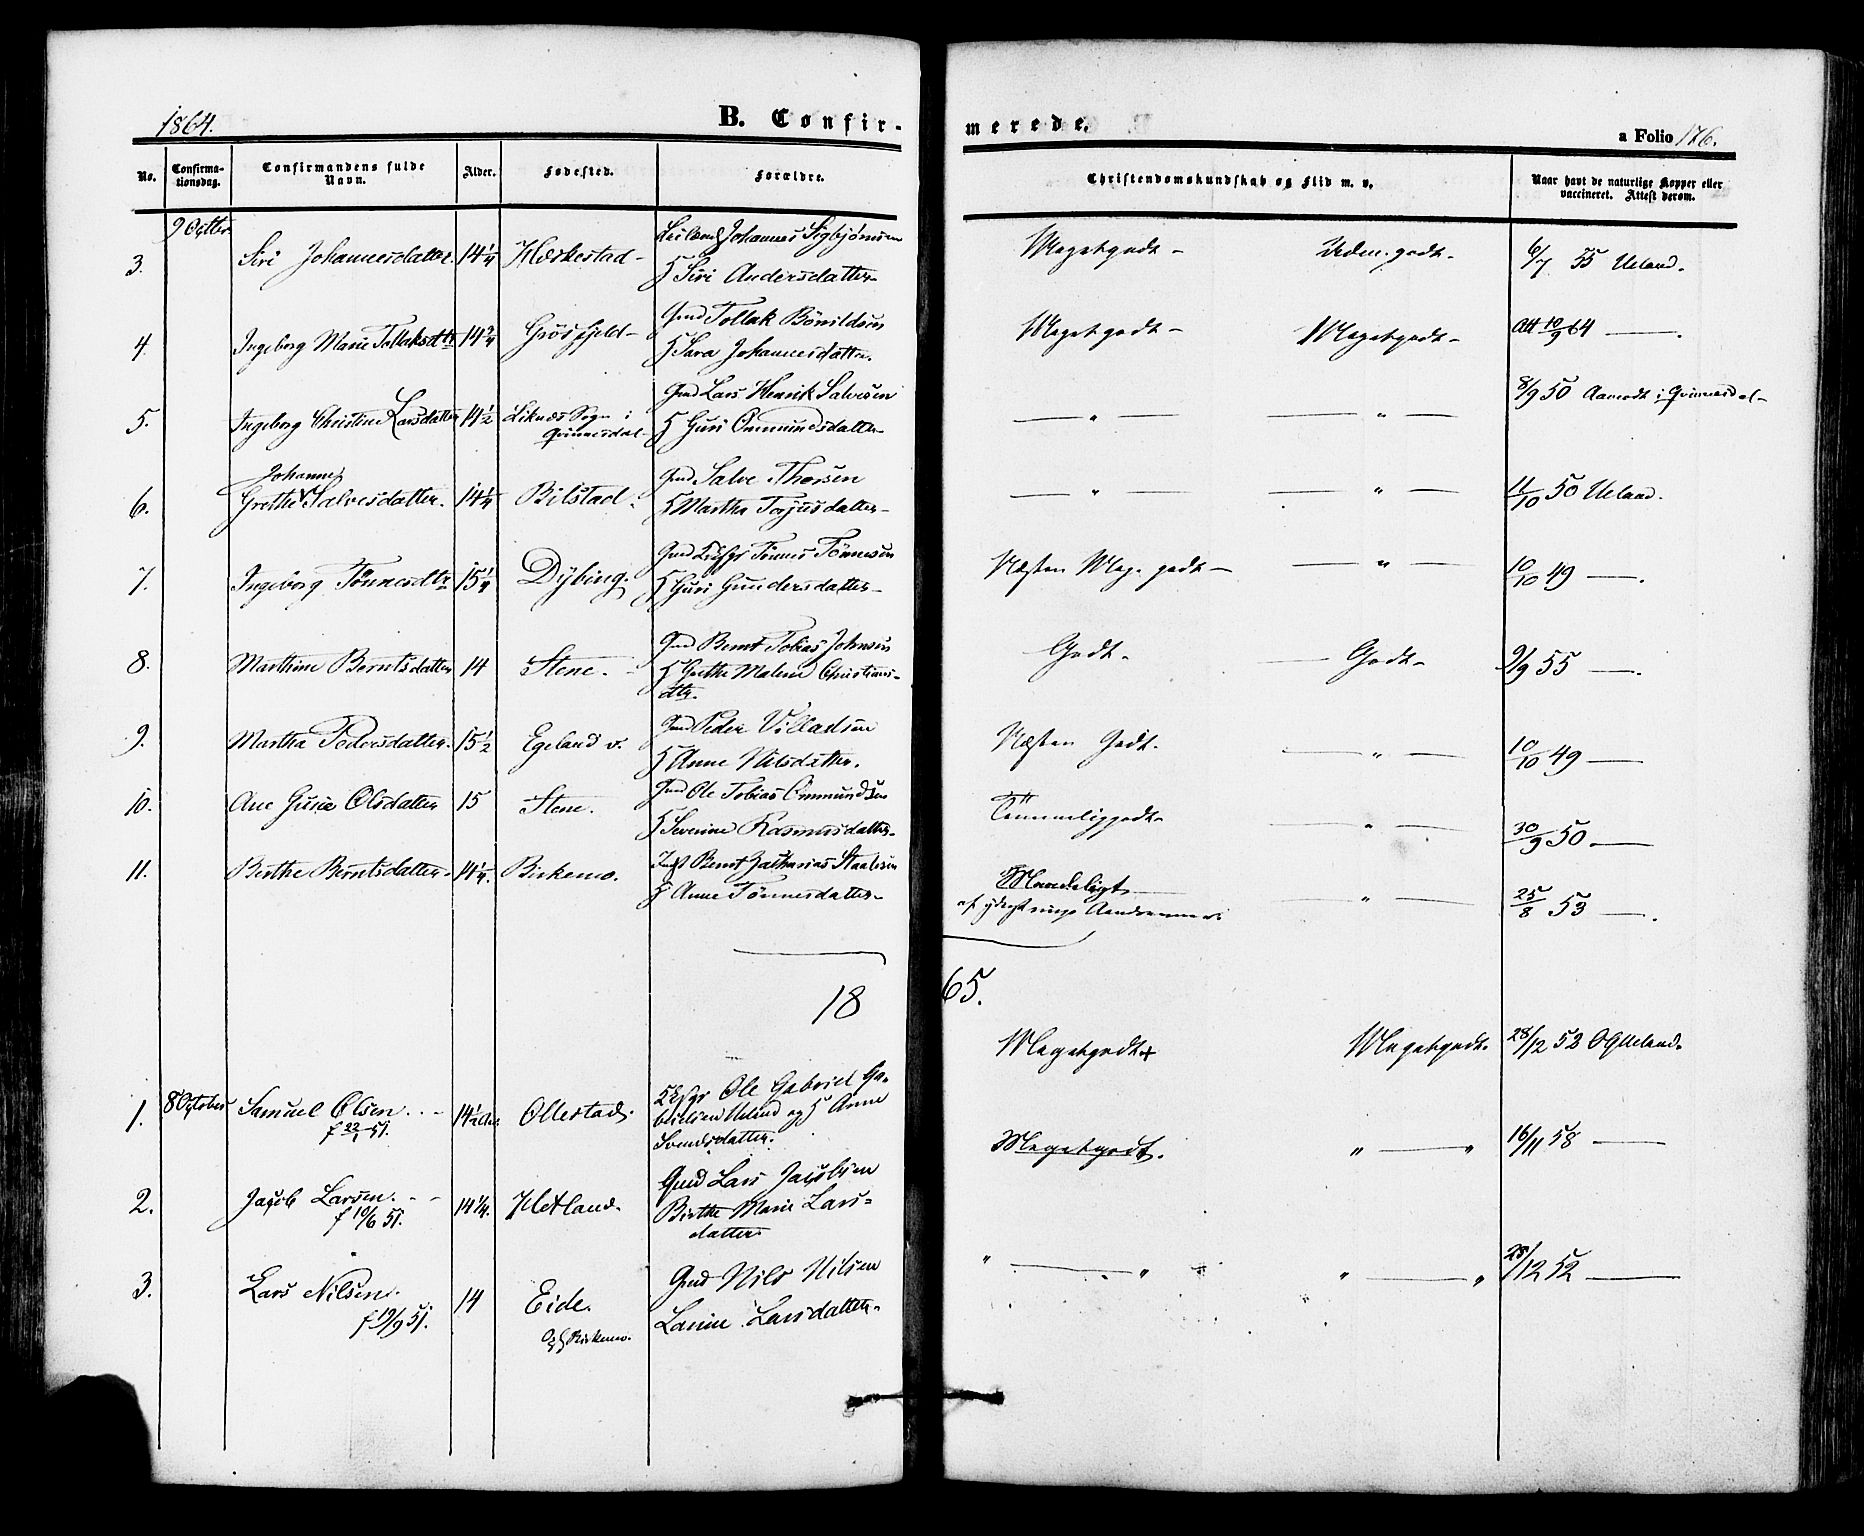 1864.
B. Confirmerede.
a Folio 176.
No.
Confirmationsdag.
Confirmandens fulde Navn.
Alder.
Fødested.
Forældre.
Christendomskundskab og Flid m. v.
Naar havt de naturlige Kopper eller vaccineret. Attest derom.
3. Siri Johannesdatter. 14 1/4 Johannes Sigbjørnsen
H Siri Andersdatter Megetgodt 6/7 55 Ueland.
4. Ingeborg Marie Tallaksdtr 14 3/4 Grøsfjeld Gmd Tollak Bönildsen
H Sara Johannesdatter. Megetgodt Megetgodt Att 10/9 64 —
5. Ingeborg Christine Larsdatter 14 1/2 Liknæs Sogn i Qvinnesdal Gmd Lars Henrik Salvesen
H Guri Ommundsdatter — " — — " — 8/9 50 Aamodt i Qvinnesdal
6. Grethe Johanne Salvesdatter. 14 1/4 Bilstad. Gmd Salve Thorsen
H Martha Torjusdatter — " — — " — 11/10 50 Ueland.
7. Ingeborg Tønnesdtr 15 1/4 Dybing. Tønnes Tønnesen
H Guri Gundersdatter Næsten Meg. godt — " — 10/10 49 —
8. Marthine Berntsdatter 14 Stene. Gmd Bernt Tobias Johnsen
H Grethe Malene Christians-
dtr. Godt — Godt 9/9 55 —
9. Martha Pedersdatter. 15 1/2 Egeland v. Gmd Peder Villadsen
H Anne Nilsdatter. Næsten Godt. — " — 10/10 49 —
10. Ane Gurie Olsdatter 15 Stene. Gmd Ole Tobias Ommundsen
H Severine Rasmusdatter Temmeliggodt — " — 30/9 50 —
11. Berthe Berntsdatter 14 1/4. Birkemo. Inst Bernt Zacharias Staalesen
H Anne Tønnesdatter Maadeligt
— " — 25/8 53 —
18 65.
1. 8 October Samuel Olsen.
f 22/1 51. 14 1/2 Ollestad. Ole Gabriel Ga-
brielsen Ueland og H Anne
Svendsdatter. Megetgodt+ Megetgodt. 28/12 52 Ueland.
2. Jacob Larsen.
f 10/6 51. 14 1/4. Hetland. Gmd Lars Jacobsen
Birthe Marie Lars-
datter Megetgodt. " — " 16/11 58 —
3. Lars Nilsen.
f 19/9 51. 14 Eide.
Birkemo. Gmd Nils Nilsen
Larsdatter. " — " " — " 28/12 52 —